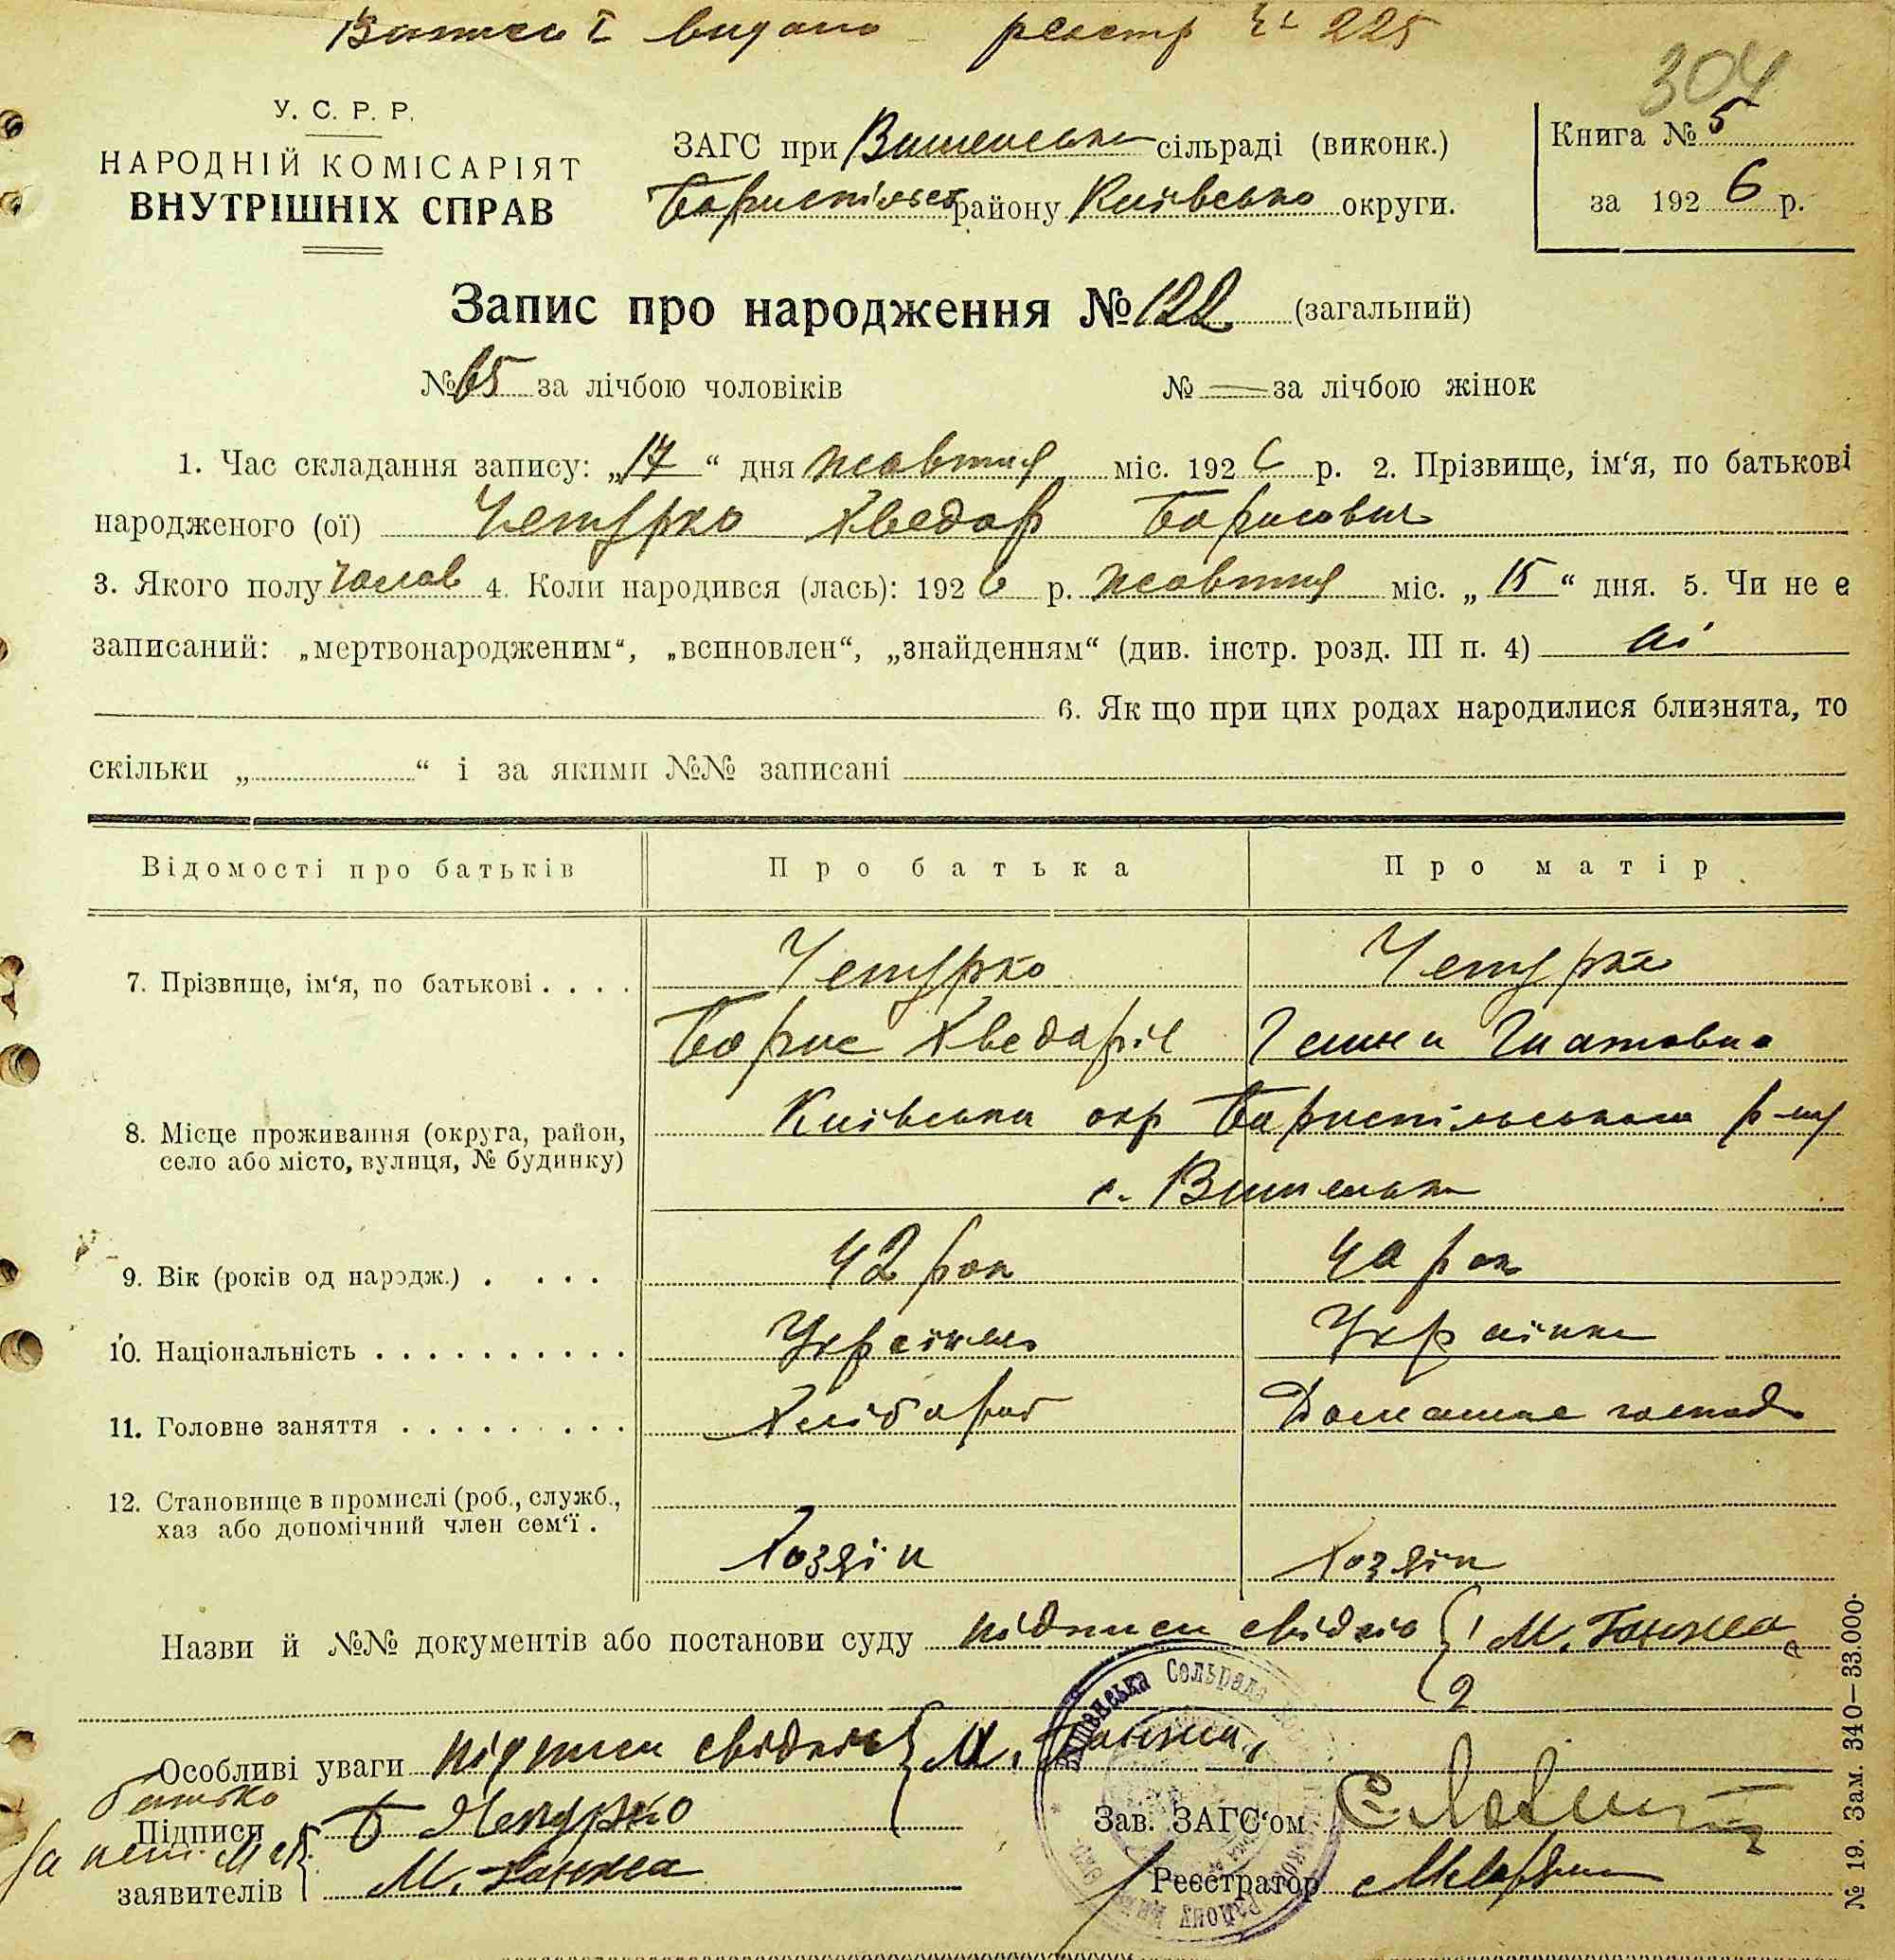 видано реєстр № 225
304
У. С. Р. Р.
НАРОДНІЙ КОМІСАРІЯТ
ВНУТРІШНІХ СПРАВ
ЗАГС при Вишенська сільраді (виконк.)
Бориспільськ району Київсько округи.
Книга № 5
за 1926 р.
Запис про народження № 122 (загальний)
№ 65 за лічбою чоловіків № — за лічбою жінок
1. Час складання запису: „17“ дня жовтня міс. 1926 р. 2. Прізвище, ім‘я, по батькові
народженого (ої) Чепурко Хведор Борисович
3. Якого полу чолов 4. Коли народився (лась): 1926 р. жовтня міс. „15“ дня. 5. Чи не є
записаний: „мертвонародженим“, „всиновлен“, „знайденням“ (див. інстр. розд. III п. 4) ні
6. Як що при цих родах народилися близнята, то
скільки „ “ і за якими №№ записані
Відомості про батьків Про батька Про матір
7. Прізвище, ім‘я, по батькові . . . . Чепурко Чепурко
Борис Хведоріч
8. Місце проживання (округа, район,
село або місто, вулиця, № будинку)
Київська окр Бориспільського р-ну
с. Вишеньки
9. Вік (років од народж.) . . . . 42 рок 40 рок
10. Національність . . . . . . . . . . Українец Українка
11. Головне заняття . . . . . . . . . Хлібороб Домашнє господ
12. Становище в промислі (роб., служб.,
хаз або допомічний член сем‘ї .
Хозяін Хозяін
Назви й №№ документів або постанови суду підписи свідків { 1 М. Ганжа
2
Особливі уваги підписи свідків { М. Ганжа
батько
Підписи Б Чепурко
заявителів М. Ганжа
Зав. ЗАГС‘ом
Реєстратор
Вишенська Сельрада
району
№ 19. Зам. 340—33.000.